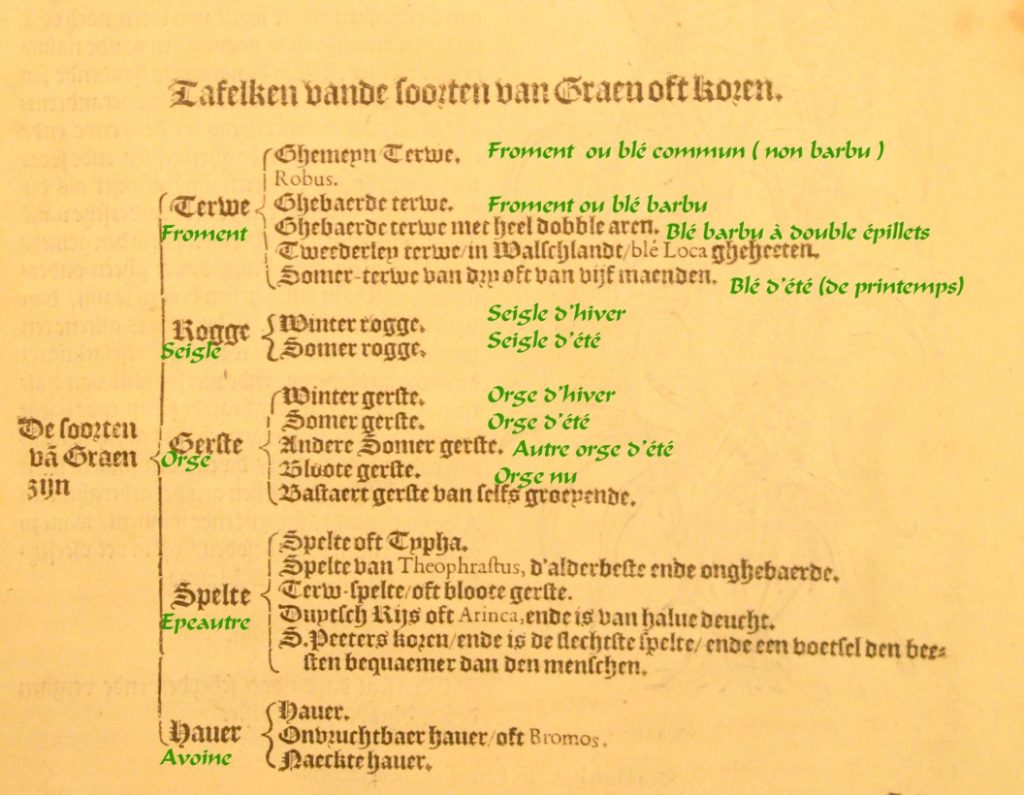 Tafelken vande soorten van Graen oft koren.
Ghemeyn Terwe. Froment ou blé commun ( non barbu )
Robus.
Terwe Ghebaerde terwe. Froment ou blé barbu
Froment Ghebaerde terwe met heel dobble aren. Blé barbu à double épillets
Tweederley terwe/in Walschlandt/blé Loca gheheeten.
Somer-terwe van dry oft van vijf maenden. Blé d'été (de printemps)
Rogge Winter rogge. Seigle d'hiver
Seigle Somer rogge. Seigle d'été
Winter gerste. Orge d'hiver
Somer gerste. Orge d'été
De soorten
vã Graen
zijn
Gerste Andere Somer gerste. Autre orge d'été
Orge Bloote gerste. Orge nu
Bastaert gerste van selfs groeyende.
Spelte oft Typha.
Spelte van Theophrastus, d'alderbeste ende onghebaerde.
Spelte Terw-spelte/oft bloote gerste.
Epeautre Duytsch Rijs oft Arinca, ende is van halue deucht.
S.Peeters koren/ende is de slechtste spelte/ ende een voetsel den bee-
sten bequaemer dan den menschen.
Hauer.
Hauer Onvruchtbaer hauer/oft Bromos.
Avoine Naeckte hauer.